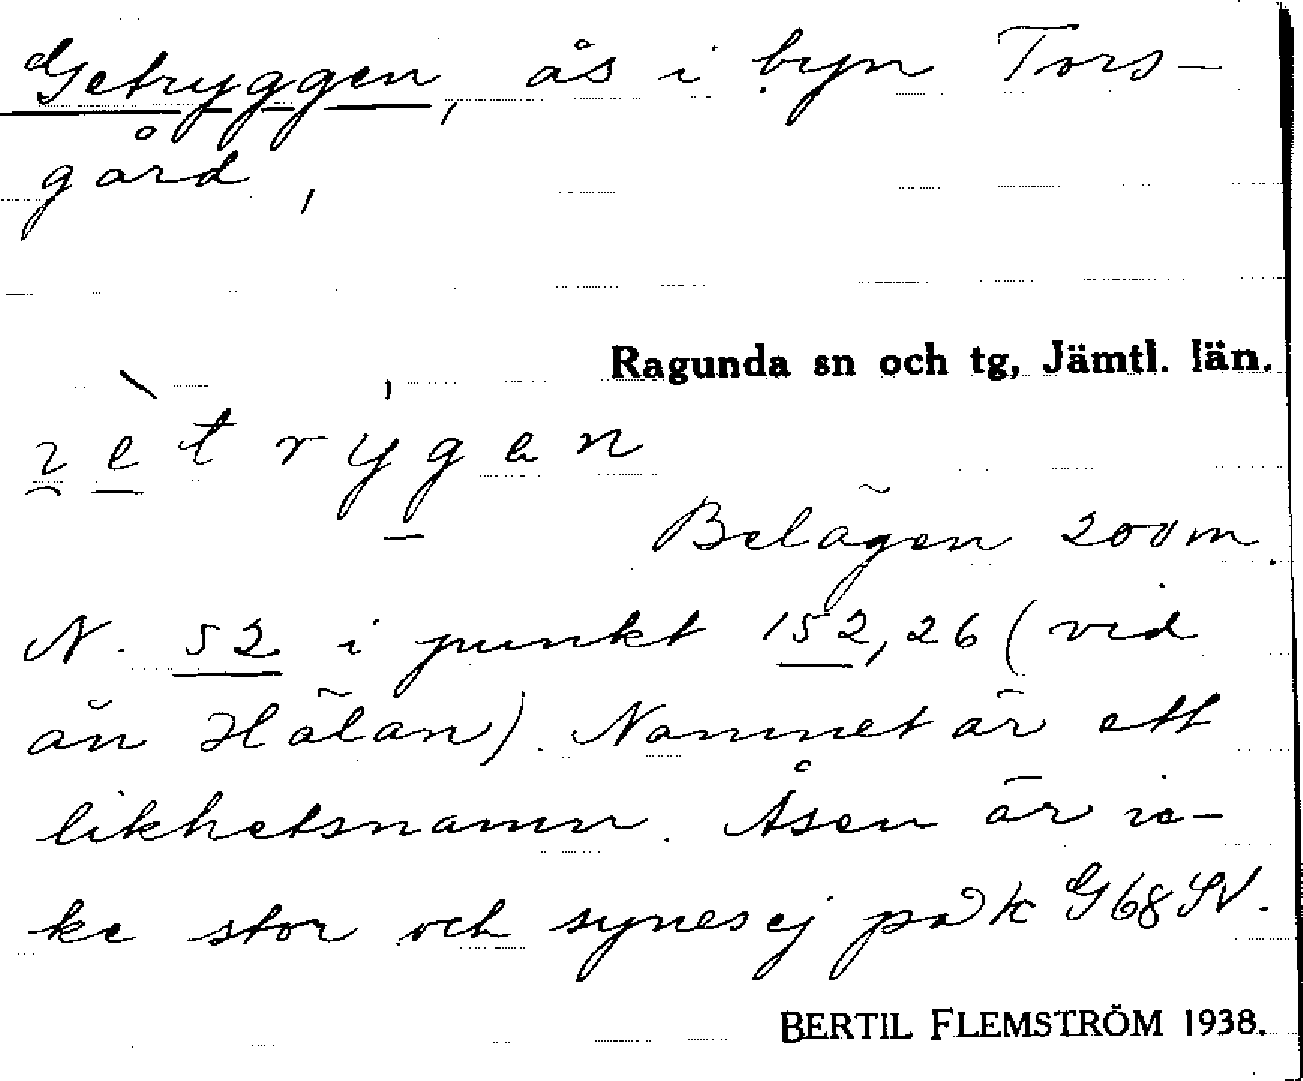 Getryggen, ås i byn Tors-
gård,
Ragunda sn och tg, Jämtl. län.
Belägen 200 m.
N. 52 i punkt 152,26 (vid
ån Hälån). Namnet är ett
likhetsnamn. Åsen är ic-
ke stor och synes ej på k G68 SV.
BERTIL FLEMSTRÖM 1938.